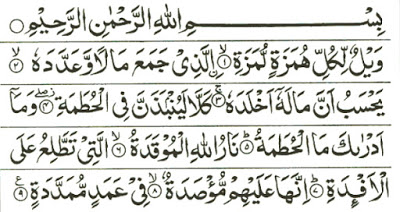 بِسْمِ اللهِ الرَّحْمٰنِ الرَّحِيْمِ ○
وَيْلٌ لِّكُلِّ هُمَزَةٍ لُّمَزَةٍ ۙ﴿۱﴾ اِۨلَّذِىْ جَمَعَ مَالًا وَّعَدَّدَهٗ ۙ﴿۲﴾
يَحْسَبُ اَنَّ مَالَهٗۤ اَخْلَدَهٗ ۚ﴿۳﴾ كَلَّا لَيُنْۢبَذَنَّ فِى الْحُطَمَةِ ۖ﴿۴﴾ وَمَاۤ
اَدْرٰىكَ مَا الْحُطَمَةُ ؕ﴿۵﴾ نَارُ اللهِ الْمُوْقَدَةُ ۙ﴿۶﴾ الَّتِىْ تَطَّلِعُ عَلَى
الْاَفْـِٕدَةِ ؕ﴿۷﴾ اِنَّهَا عَلَيْهِمْ مُّؤْصَدَةٌ ۙ﴿۸﴾ فِىْ عَمَدٍ مُّمَدَّدَةٍ ﴿۹﴾ ع